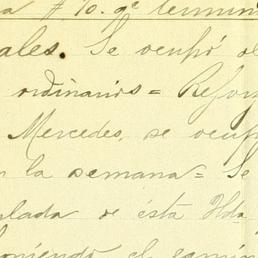 a # 10. qe termin
ales. Se ocupó al
ordinarios = Refor
Mercedes, se ocup
n la semana = Se
alada de ésta Hda
oniendo el camin